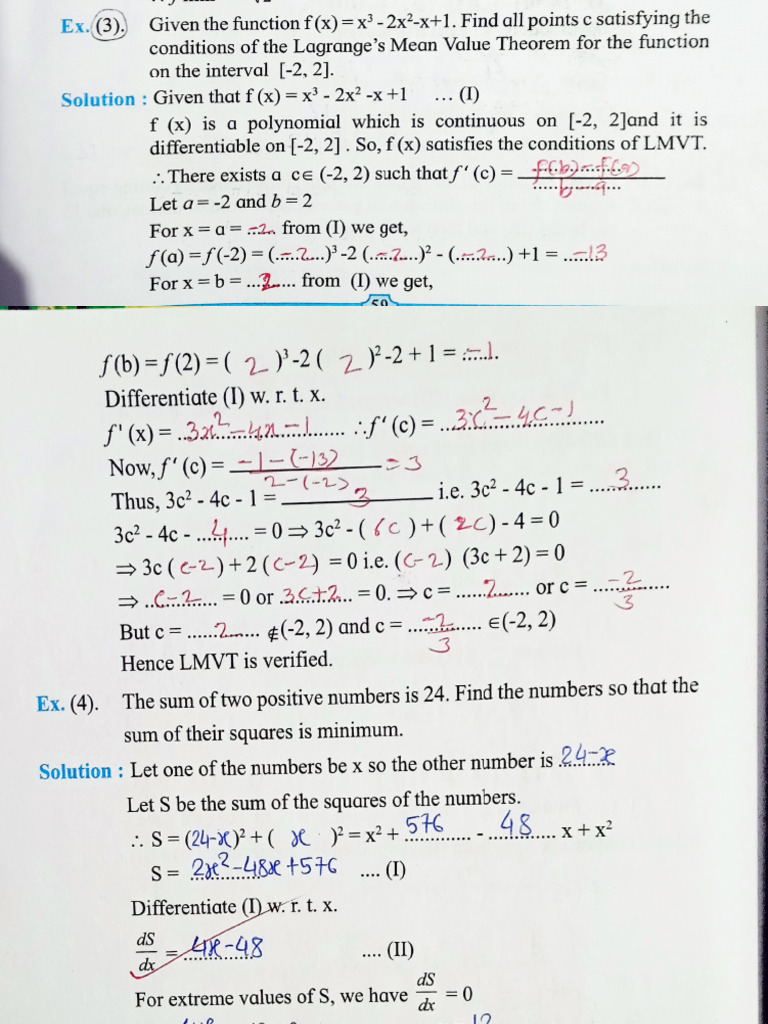 Ex. (3). Given the function f (x) = x³ - 2x²-x+1. Find all points c satisfying the
conditions of the Lagrange's Mean Value Theorem for the function
on the interval [-2, 2].
Solution : Given that f (x) = x³ - 2x² -x +1 ... (I)
f (x) is a polynomial which is continuous on [-2, 2]and it is
differentiable on [-2, 2] . So, f (x) satisfies the conditions of LMVT.
∴There exists a c∈ (-2, 2) such that f' (c) = f(b)-f(a) / b-a
Let a = -2 and b = 2
For x = a = -2 from (I) we get,
f (a) = f (-2) = (-2)³ -2 (-2)² - (-2) +1 = -13
For x = b = 2 from (I) we get,
59
f (b) = f (2) = ( 2 )³ -2 ( 2 )² -2 + 1 = -1.
Differentiate (I) w. r. t. x.
f' (x) = 3x²-4x-1 ∴f' (c) = 3c²-4c-1
Now, f' (c) = -1-(-13) / 2-(-2) = 3
Thus, 3c² - 4c - 1 = 3 i.e. 3c² - 4c - 1 = 3
3c² - 4c - 4 = 0 ⇒ 3c² - ( 6c ) + ( 2c ) - 4 = 0
⇒ 3c ( c-2 ) + 2 ( c-2 ) = 0 i.e. (c-2 ) (3c + 2) = 0
⇒ c-2 = 0 or 3c+2 = 0. ⇒ c = 2 or c = -2/3
But c = 2 ∉ (-2, 2) and c = -2/3 ∈(-2, 2)
Hence LMVT is verified.
Ex. (4). The sum of two positive numbers is 24. Find the numbers so that the
sum of their squares is minimum.
Solution : Let one of the numbers be x so the other number is 24-x
Let S be the sum of the squares of the numbers.
∴ S = (24-x)² + ( x )² = x² + 576 - 48 x + x²
S = 2x²-48x+576 .... (I)
Differentiate (I) w. r. t. x.
dS/dx = 4x-48 .... (II)
For extreme values of S, we have dS/dx = 0
12